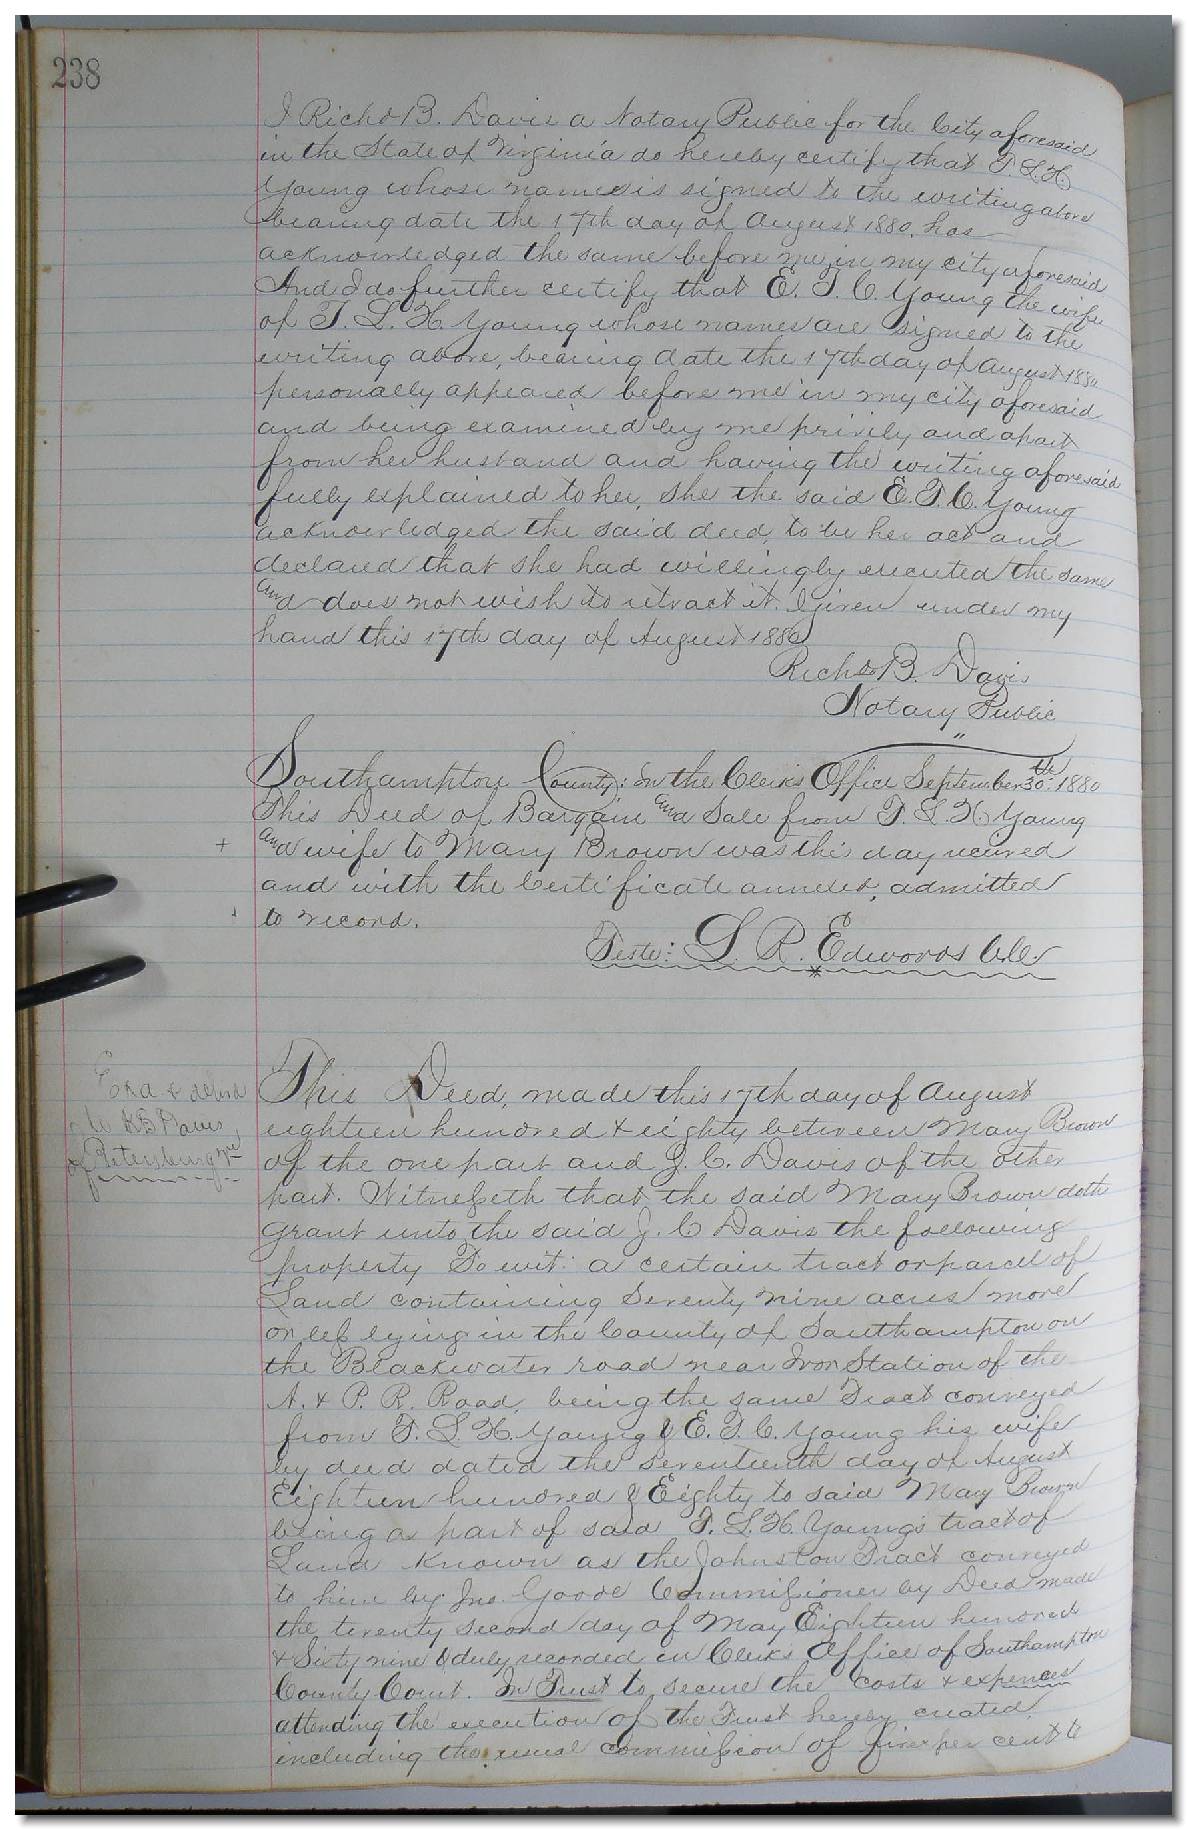 238
I Richd B. Davis a Notary Public for the City aforesaid
in the State of Virginia do hereby certify that T. L. H.
Young whose name is signed to the writing above
bearing date the 17th day of August 1880, has
acknowledged the same before me in my city aforesaid
And I do further certify that E. T. C. Young the wife
of T. L. H. Young whose names are signed to the
writing above, bearing date the 17th day of August 1880
personally appeared before me in my city aforesaid
and being examined by me privily and apart
from her husband and having the writing aforesaid
fully explained to her, she the said E. T. C. Young
acknowledged the said deed, to be her act and
declared that she had willingly executed the same
and does not wish to retract it. Given under my
hand this 17th day of August 1880
Richd B. Davis
Notary Public
Southampton County: In the Clerks Office September 30th: 1880
This Deed of Bargain and Sale from T. L. H. Young
and wife to Mary Brown was this day received
and with the Certificate annexed, admitted
to record.
Teste: L. R. Edwards Clk
Exd & delivd
to R B Davis
of Petersburg Va
This Deed, made this 17th day of August
eighteen hundred & eighty between Mary Brown
of the one part and J. C. Davis of the other
part. Witnesseth that the said Mary Brown doth
grant unto the said J. C Davis the following
property To wit: a certain tract or parcel of
Land containing Seventy nine acres more
or less lying in the County of Southampton on
the Blackwater road near Ivor Station of the
N. & P. R. Road, being the same Tract conveyed
from T. L. H. Young & E. T. C. Young his wife
by deed dated the Seventeenth day of August
Eighteen hundred & Eighty to said Mary Brown
being a part of said T. L. H. Young's tract of
Land known as the Johnston Tract conveyed
to him by Jno. Goode Commissioner by Deed made
the twenty second day of May Eighteen hundred
& Sixty nine & duly recorded in Clerks Office of Southampton
County Court. In Trust to secure the costs & expences
attending the execution of the Trust hereby created,
including the usual commission of five per cent to